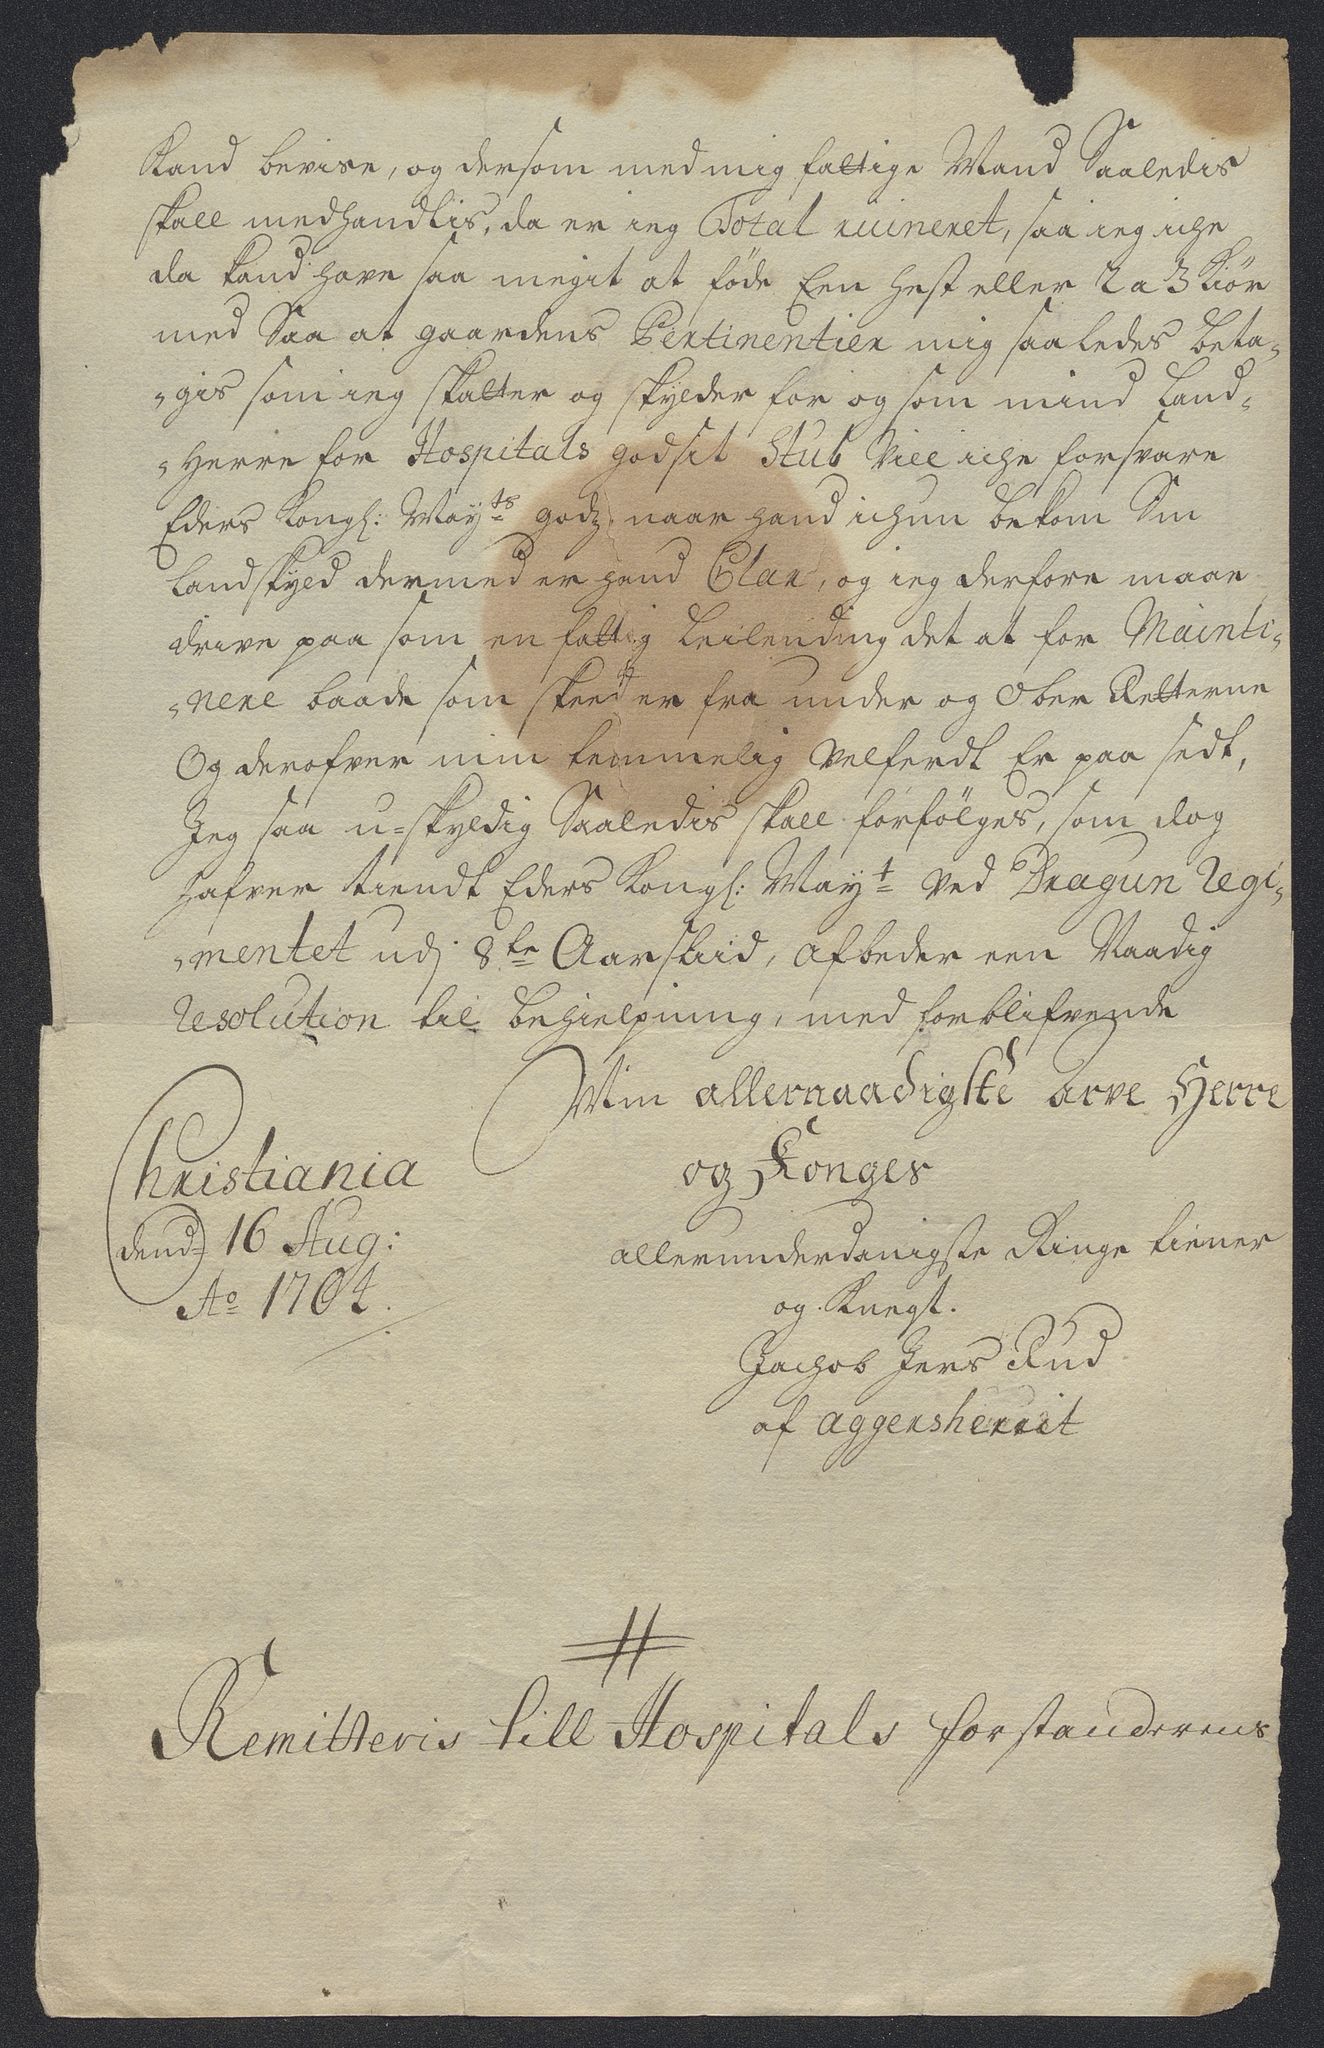 Kand bevise, og dersom med mig fattige Mand Saaledis
skall medhandlis, da er ieg Total ruineret, saa ieg iche
da kand have saa megit at føde Een hest eller 2 a 3 Kiør
med Saa at gaardens Pertinentier mig saaledes beta-
-gis som ieg skatter og skylder for og som mind Land-
-Herre for Hospitals godsit Stub Vill iche forsvare
Eders Kongl: Mayts godz naar hand ichun bekom Sin
Landskyld dermed er hand Clar, og ieg derfore maae
drive paa som en fattig Leilending det at for Mainti-
-nere baade som skeed er fra under og Ober Retterne
Og derofver min temmelig Velferdt Er paa sedt,
Jeg saa u=skyldig Saaledis skall forfølges, som dog
hafver tiendt Eders Kongl: Mayt Ved Dragun Regi-
-mentet udj 8te Aars tiid, afbeder een Naadig
Resolution til behielpning, med forblifvende
Min allernaadigste arve Herre
og Konges
Christiania
dend 16 Aug:
Ao 1704.
allerunderdanigste Ringe tiener
og Knegt.
Jachob Jens Rud
af aggersherrit
Remitteris till Hospitals forstanderens